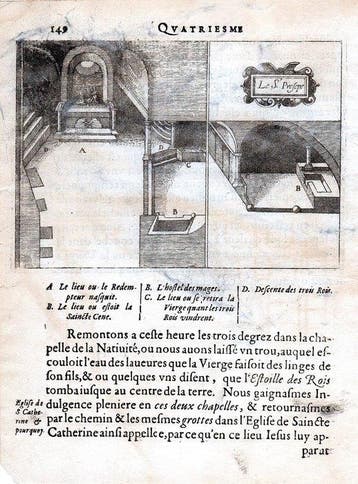 149 QVATRIESME
Le St Presepe
A
B
C
B
D
B
A Le lieu ou le Redem-
pteur nasquit.
B. Le lieu ou estoit la
Saincte Cene.
B. L'hostel des mages.
C. Le lieu ou se retira la
Vierge quant les trois
Rois vindrent.
D. Descente des trois Rois.
Remontons a ceste heure les trois degrez dans la cha-
pelle de la Natiuité, ou nous auons laissé vn trou, auquel es-
couloit l'eau des laueures que la Vierge faisoit des linges de
son fils, & ou quelques vns disent, que l'Estoille des Rois
tomba iusque au centre de la terre. Nous gaignasmes In-
dulgence pleniere en ces deux chapelles, & retournasmes
par le chemin & les mesmes grottes dans l'Eglise de Saincte
Catherine ainsi appellee, par ce qu'en ce lieu Iesus luy ap
parat
Eglise de
S. Cathe-
rine &
pourquoy